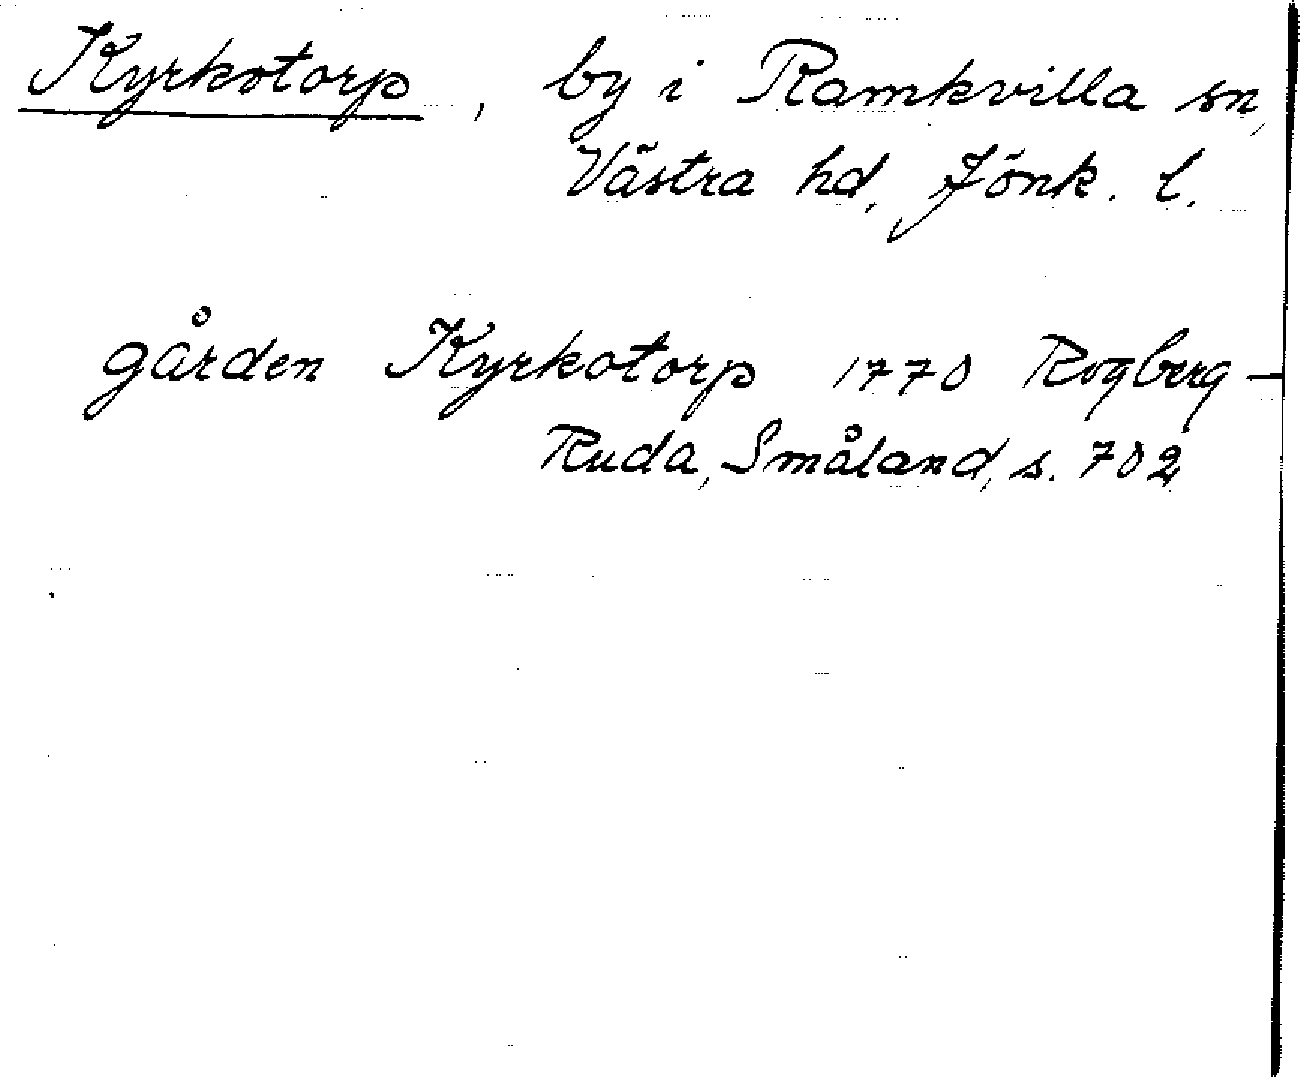 Kyrkotorp, by i Ramkvilla sn,
Västra hd, Jönk. l.
gården Kyrkotorp 1770 Rogberg-
Ruda, Småland, s. 702